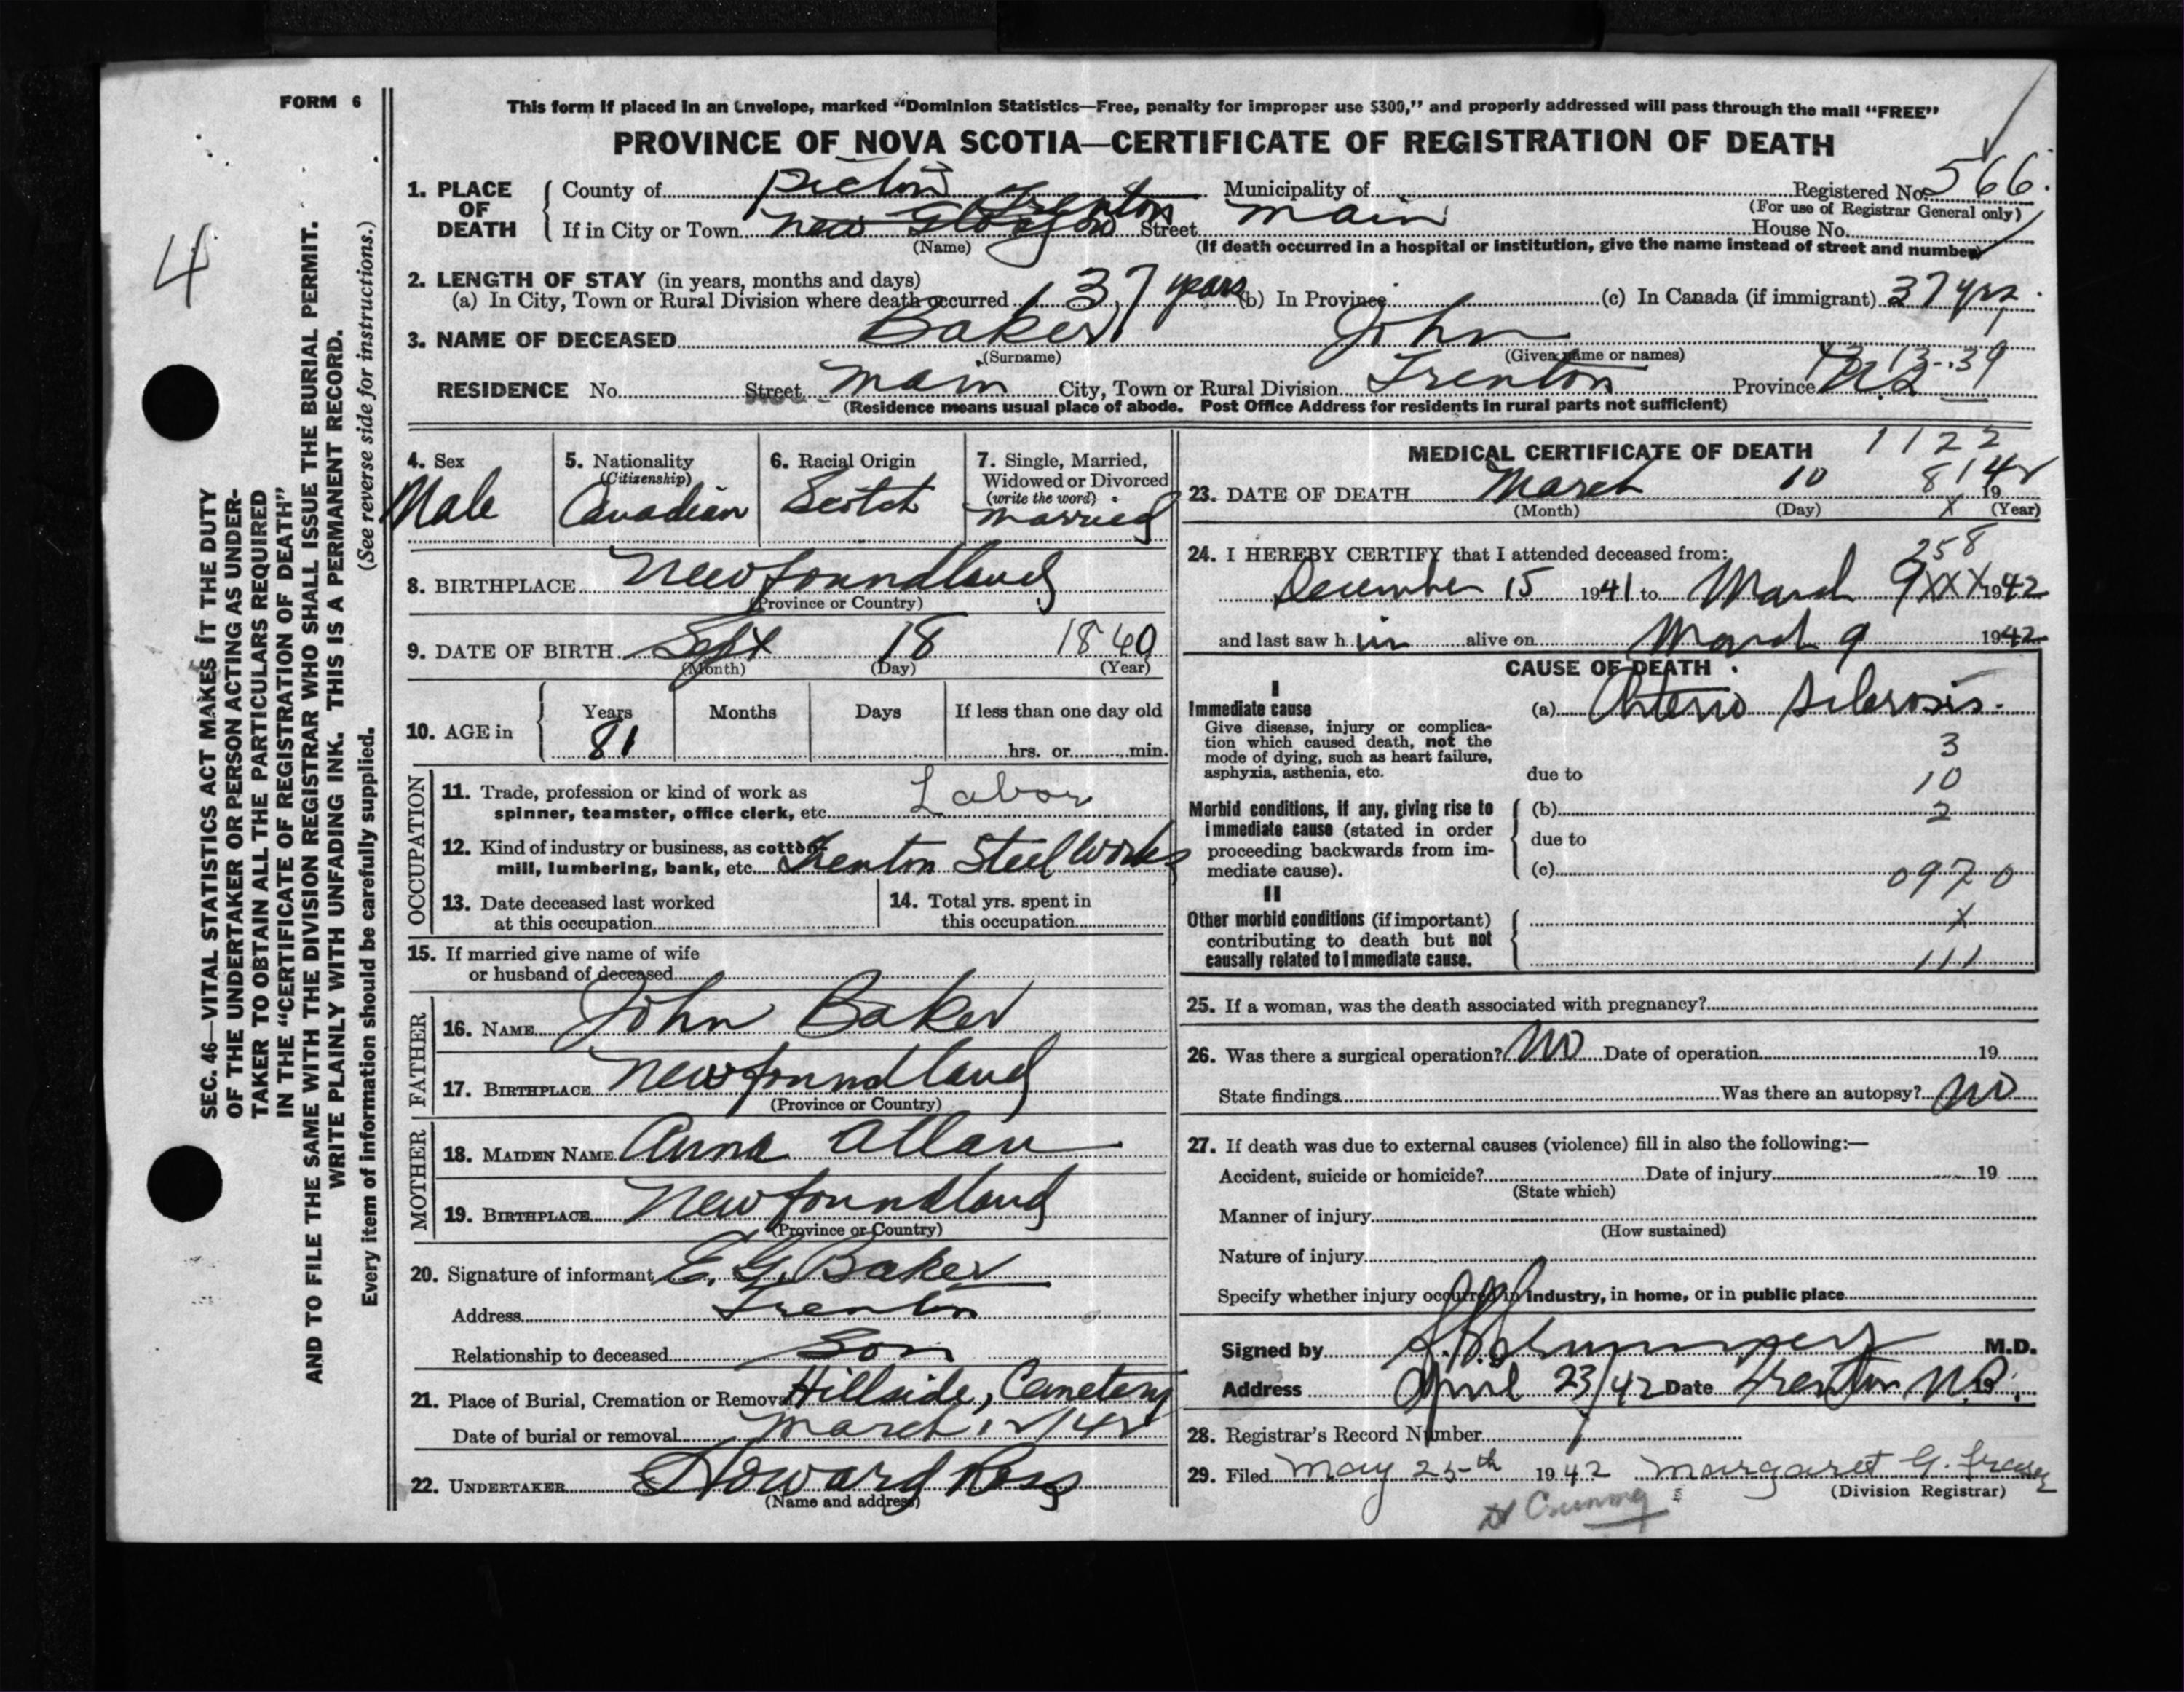 FORM 6
This form if placed in an Envelope, marked “Dominion Statistics—Free, penalty for improper use $300,” and properly addressed will pass through the mail “FREE”
PROVINCE OF NOVA SCOTIA—CERTIFICATE OF REGISTRATION OF DEATH
1. PLACE OF DEATH County of Pictou Municipality of Registered No. 566.
(For use of Registrar General only)
Trenton
If in City or Town New Glasgow Street Main House No.
(Name) (If death occurred in a hospital or institution, give the name instead of street and number)
2. LENGTH OF STAY (in years, months and days)
(a) In City, Town or Rural Division where death occurred 37 years (b) In Province (c) In Canada (if immigrant) 37 yrs.
3. NAME OF DECEASED Baker, John
(Surname) (Given name or names)
RESIDENCE No. Street Main City, Town or Rural Division Trenton Province N.S.
(Residence means usual place of abode. Post Office Address for residents in rural parts not sufficient)
4. Sex 5. Nationality (Citizenship) 6. Racial Origin 7. Single, Married, Widowed or Divorced (write the word)
Male Canadian Scotch Married
8. BIRTHPLACE Newfoundland
(Province or Country)
9. DATE OF BIRTH Sept 18 1860
(Month) (Day) (Year)
10. AGE in Years Months Days If less than one day old
81 hrs. or min.
OCCUPATION
11. Trade, profession or kind of work as
spinner, teamster, office clerk, etc. Labor
12. Kind of industry or business, as cotton
mill, lumbering, bank, etc. Trenton Steel Works
13. Date deceased last worked
at this occupation
14. Total yrs. spent in
this occupation
15. If married give name of wife
or husband of deceased
FATHER
16. NAME John Baker
17. BIRTHPLACE Newfoundland
(Province or Country)
MOTHER
18. MAIDEN NAME Anna Allan
19. BIRTHPLACE Newfoundland
(Province or Country)
20. Signature of informant E. G. Baker
Address Trenton
Relationship to deceased Son
21. Place of Burial, Cremation or Removal Hillside, Cemetery
Date of burial or removal March 12/42
22. UNDERTAKER Howard Ross
(Name and address)
MEDICAL CERTIFICATE OF DEATH 1122
23. DATE OF DEATH March 10 81 1942
(Month) (Day) x (Year)
258
24. I HEREBY CERTIFY that I attended deceased from:
December 15 1941 to March 9 XXX 1942
and last saw him alive on March 9 1942
CAUSE OF DEATH
I
Immediate cause
Give disease, injury or complica-
tion which caused death, not the
mode of dying, such as heart failure,
asphyxia, asthenia, etc.
(a) Arterio Sclerosis.
3
due to
10
Morbid conditions, if any, giving rise to
immediate cause (stated in order
proceeding backwards from im-
mediate cause).
(b) 2
due to
(c) 0970
II
Other morbid conditions (if important)
contributing to death but not
causally related to immediate cause.
x
111
25. If a woman, was the death associated with pregnancy?
26. Was there a surgical operation? No Date of operation 19
State findings Was there an autopsy? No
27. If death was due to external causes (violence) fill in also the following:—
Accident, suicide or homicide? Date of injury 19
(State which)
Manner of injury
(How sustained)
Nature of injury
Specify whether injury occurred in industry, in home, or in public place
Signed by M.D.
Address April 23/42 Date Trenton N.S. 19
28. Registrar's Record Number
29. Filed May 25th 1942 Margaret G. Fraser
(Division Registrar)
4
SEC. 46—VITAL STATISTICS ACT MAKES IT THE DUTY
OF THE UNDERTAKER OR PERSON ACTING AS UNDER-
TAKER TO OBTAIN ALL THE PARTICULARS REQUIRED
IN THE “CERTIFICATE OF REGISTRATION OF DEATH”
AND TO FILE THE SAME WITH THE DIVISION REGISTRAR WHO SHALL ISSUE THE BURIAL PERMIT.
WRITE PLAINLY WITH UNFADING INK. THIS IS A PERMANENT RECORD.
(See reverse side for instructions.)
Every item of information should be carefully supplied.